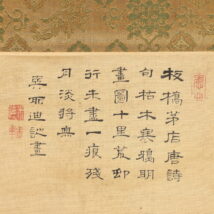 板橋茅店唐詩
句枯木寒鴉明
畫圖十里荒邨
行未盡一痕殘
月淡將無
吳迪畫